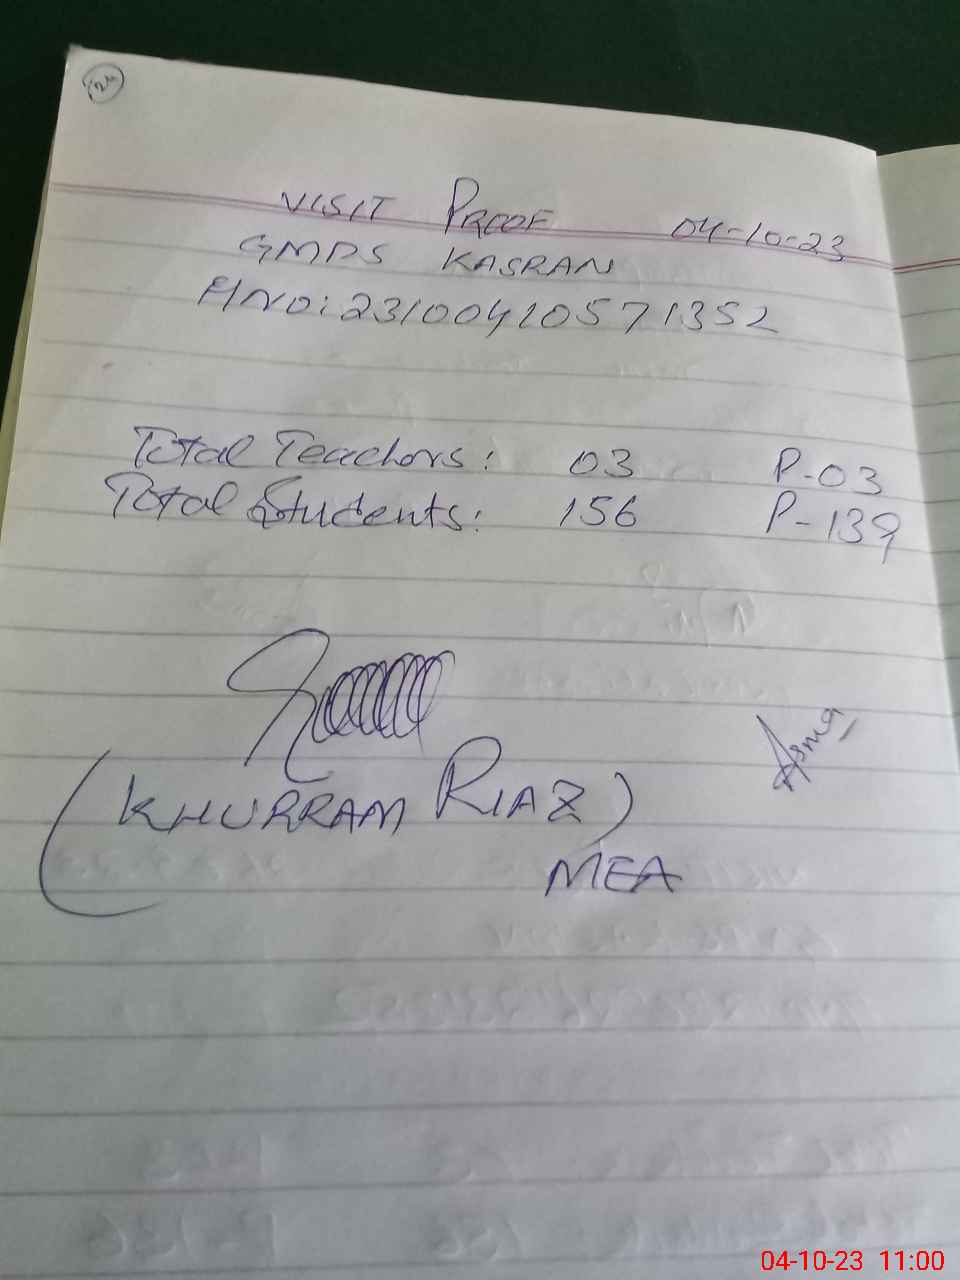 24
VISIT PROOF 04-10-23
GMPS KASRAN
HNO: 23100410571352
Total Teachers: 03 P-03
Total Students: 156 P-139
Asma
(KHURRAM RIAZ)
MEA
04-10-23 11:00